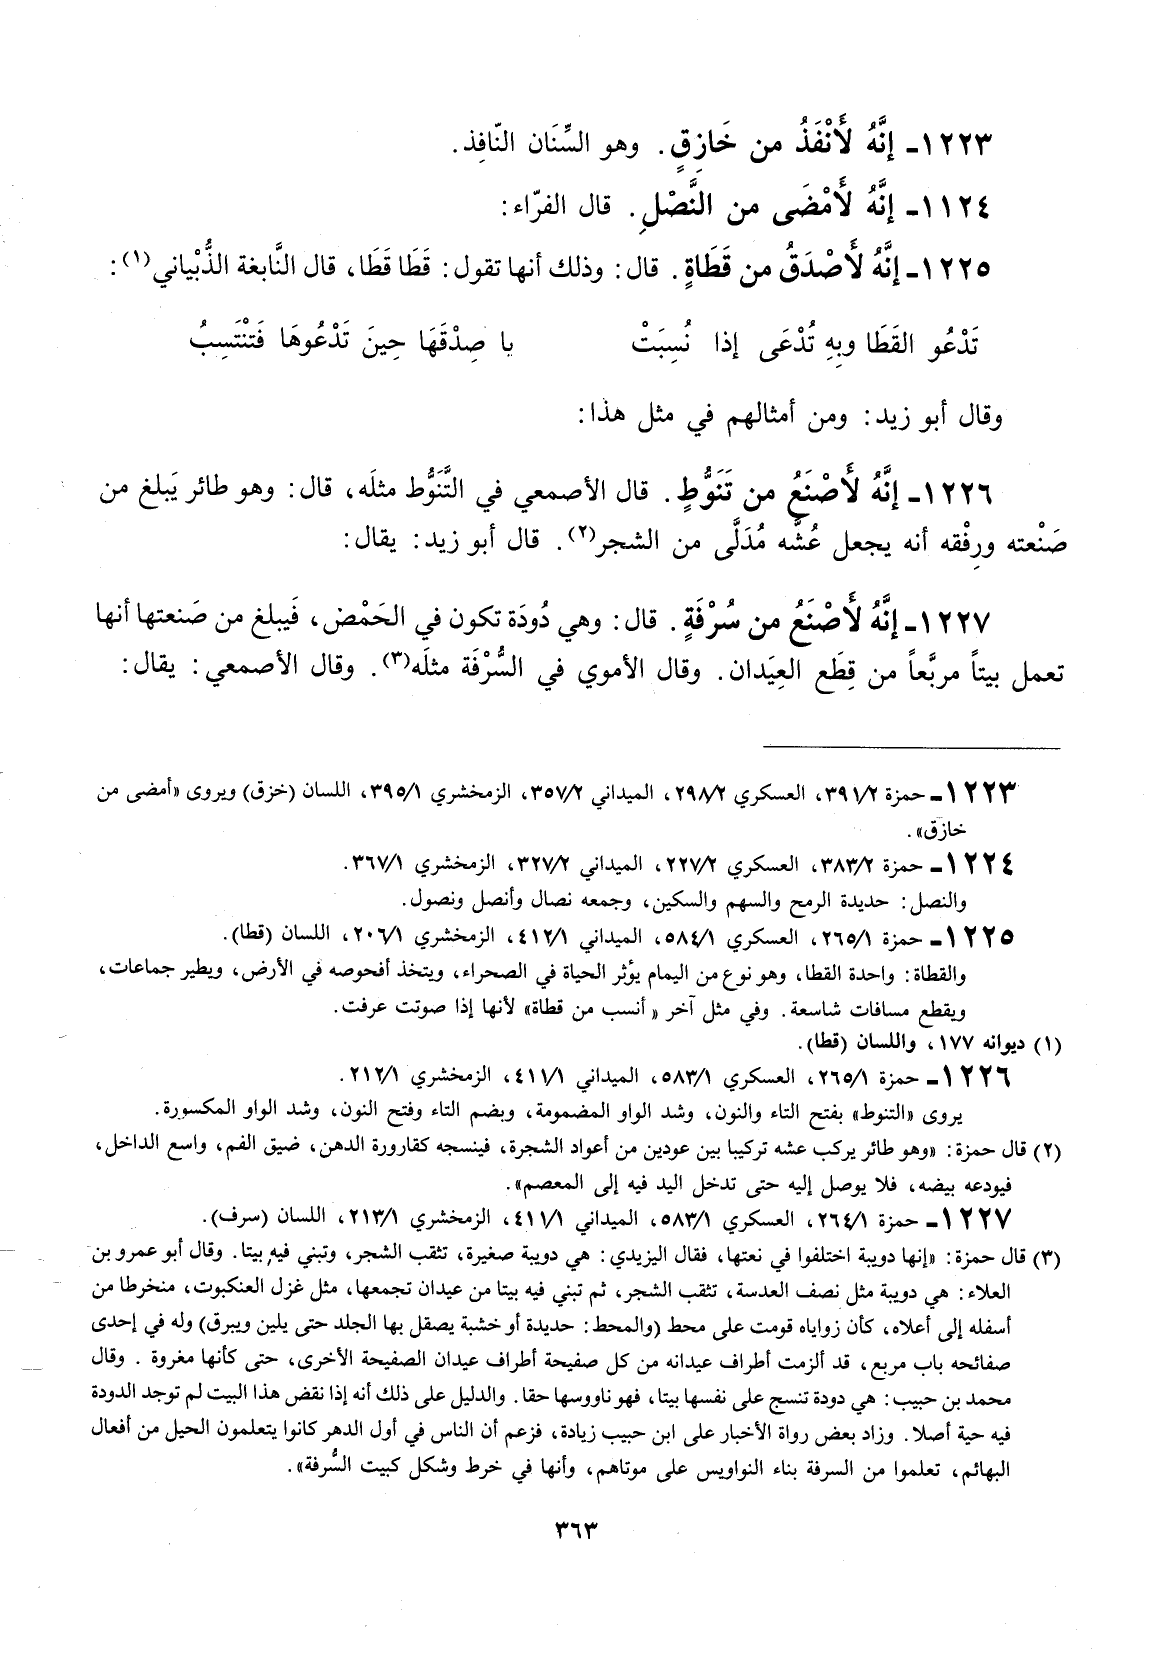 ١٢٢٣ـ إِنَّهُ لَأَنْفَذُ من خَازِقٍ. وهو السِّنَان النّافِذ.
١١٢٤ـ إِنَّهُ لَأَمْضَى من النَّصْلِ. قال الفرّاء:
١٢٢٥ـ إِنَّهُ لَأَصْدَقُ من قَطَاةٍ. قال: وذلك أنها تقول: قَطَا قَطَا، قال النَّابغة الذُّبْياني(١):
تَدْعُو القَطَا وبِهِ تُدْعَى إذا نُسِبَتْ يا صِدْقَهَا حِينَ تَدْعُوهَا فَتَنْتَسِبُ
وقال أبو زيد: ومن أمثالهم في مثل هذا:
١٢٢٦ـ إِنَّهُ لَأَصْنَعُ من تَنَوُّطٍ. قال الأصمعي في التَّنَوُّط مثلَه، قال: وهو طائر يَبلغ من
صَنْعته ورِفْقه أنه يجعل عُشَّه مُدَلَّى من الشجر(٢). قال أبو زيد: يقال:
١٢٢٧ـ إِنَّهُ لَأَصْنَعُ من سُرْفَةٍ. قال: وهي دُودَة تكون في الحَمْض، فَيبلغ من صَنعتها أنها
تعمل بيتاً مربَّعاً من قِطَع العِيَدان. وقال الأموي في السُّرْفَة مثلَه(٣). وقال الأصمعي: يقال:
١٢٢٣ـ حمزة ٣٩١/٢، العسكري ٢٩٨/٢، الميداني ٣٥٧/٢، الزمخشري ٣٩٥/١، اللسان (خزق) ويروى «أمضى من
خازق».
١٢٢٤ـ حمزة ٣٨٣/٢، العسكري ٢٢٧/٢، الميداني ٣٢٧/٢، الزمخشري ٣٦٧/١.
والنصل: حديدة الرمح والسهم والسكين، وجمعه نصال وأنصل ونصول.
١٢٢٥ـ حمزة ٢٦٥/١، العسكري ٥٨٤/١، الميداني ٤١٢/١، الزمخشري ٢٠٦/١، اللسان (قطا).
والقطاة: واحدة القطا، وهو نوع من اليمام يؤثر الحياة في الصحراء، ويتخذ أفحوصه في الأرض، ويطير جماعات،
ويقطع مسافات شاسعة. وفي مثل آخر «أنسب من قطاة» لأنها إذا صوتت عرفت.
(١) ديوانه ١٧٧، واللسان (قطا).
١٢٢٦ـ حمزة ٢٦٥/١، العسكري ٥٨٣/١، الميداني ٤١١/١، الزمخشري ٢١٢/١.
يروى «التنوط» بفتح التاء والنون، وشد الواو المضمومة، وبضم التاء وفتح النون، وشد الواو المكسورة.
(٢) قال حمزة: «وهو طائر يركب عشه تركيبا بين عودين من أعواد الشجرة، فينسجه كقارورة الدهن، ضيق الفم، واسع الداخل،
فيودعه بيضه، فلا يوصل إليه حتى تدخل اليد فيه إلى المعصم».
١٢٢٧ـ حمزة ٢٦٤/١، العسكري ٥٨٣/١، الميداني ٤١١/١، الزمخشري ٢١٣/١، اللسان (سرف).
(٣) قال حمزة: «إنها دويبة اختلفوا في نعتها، فقال اليزيدي: هي دويبة صغيرة، تثقب الشجر، وتبني فيه بيتا. وقال أبو عمرو بن
العلاء: هي دويبة مثل نصف العدسة، تثقب الشجر، ثم تبني فيه بيتا من عيدان تجمعها، مثل غزل العنكبوت، منخرطا من
أسفله إلى أعلاه، كأن زواياه قومت على محط (والمحط: حديدة أو خشبة يصقل بها الجلد حتى يلين ويبرق) وله في إحدى
صفائحه باب مربع، قد ألزمت أطراف عيدانه من كل صفيحة أطراف عيدان الصفيحة الأخرى، حتى كأنها مغروة . وقال
محمد بن حبيب: هي دودة تنسج على نفسها بيتا، فهو ناووسها حقا. والدليل على ذلك أنه إذا نقض هذا البيت لم توجد الدودة
فيه حية أصلا. وزاد بعض رواة الأخبار على ابن حبيب زيادة، فزعم أن الناس في أول الدهر كانوا يتعلمون الحيل من أفعال
البهائم، تعلموا من السرفة بناء النواويس على موتاهم، وأنها في خرط وشكل كبيت السُّرفة».
٣٦٣